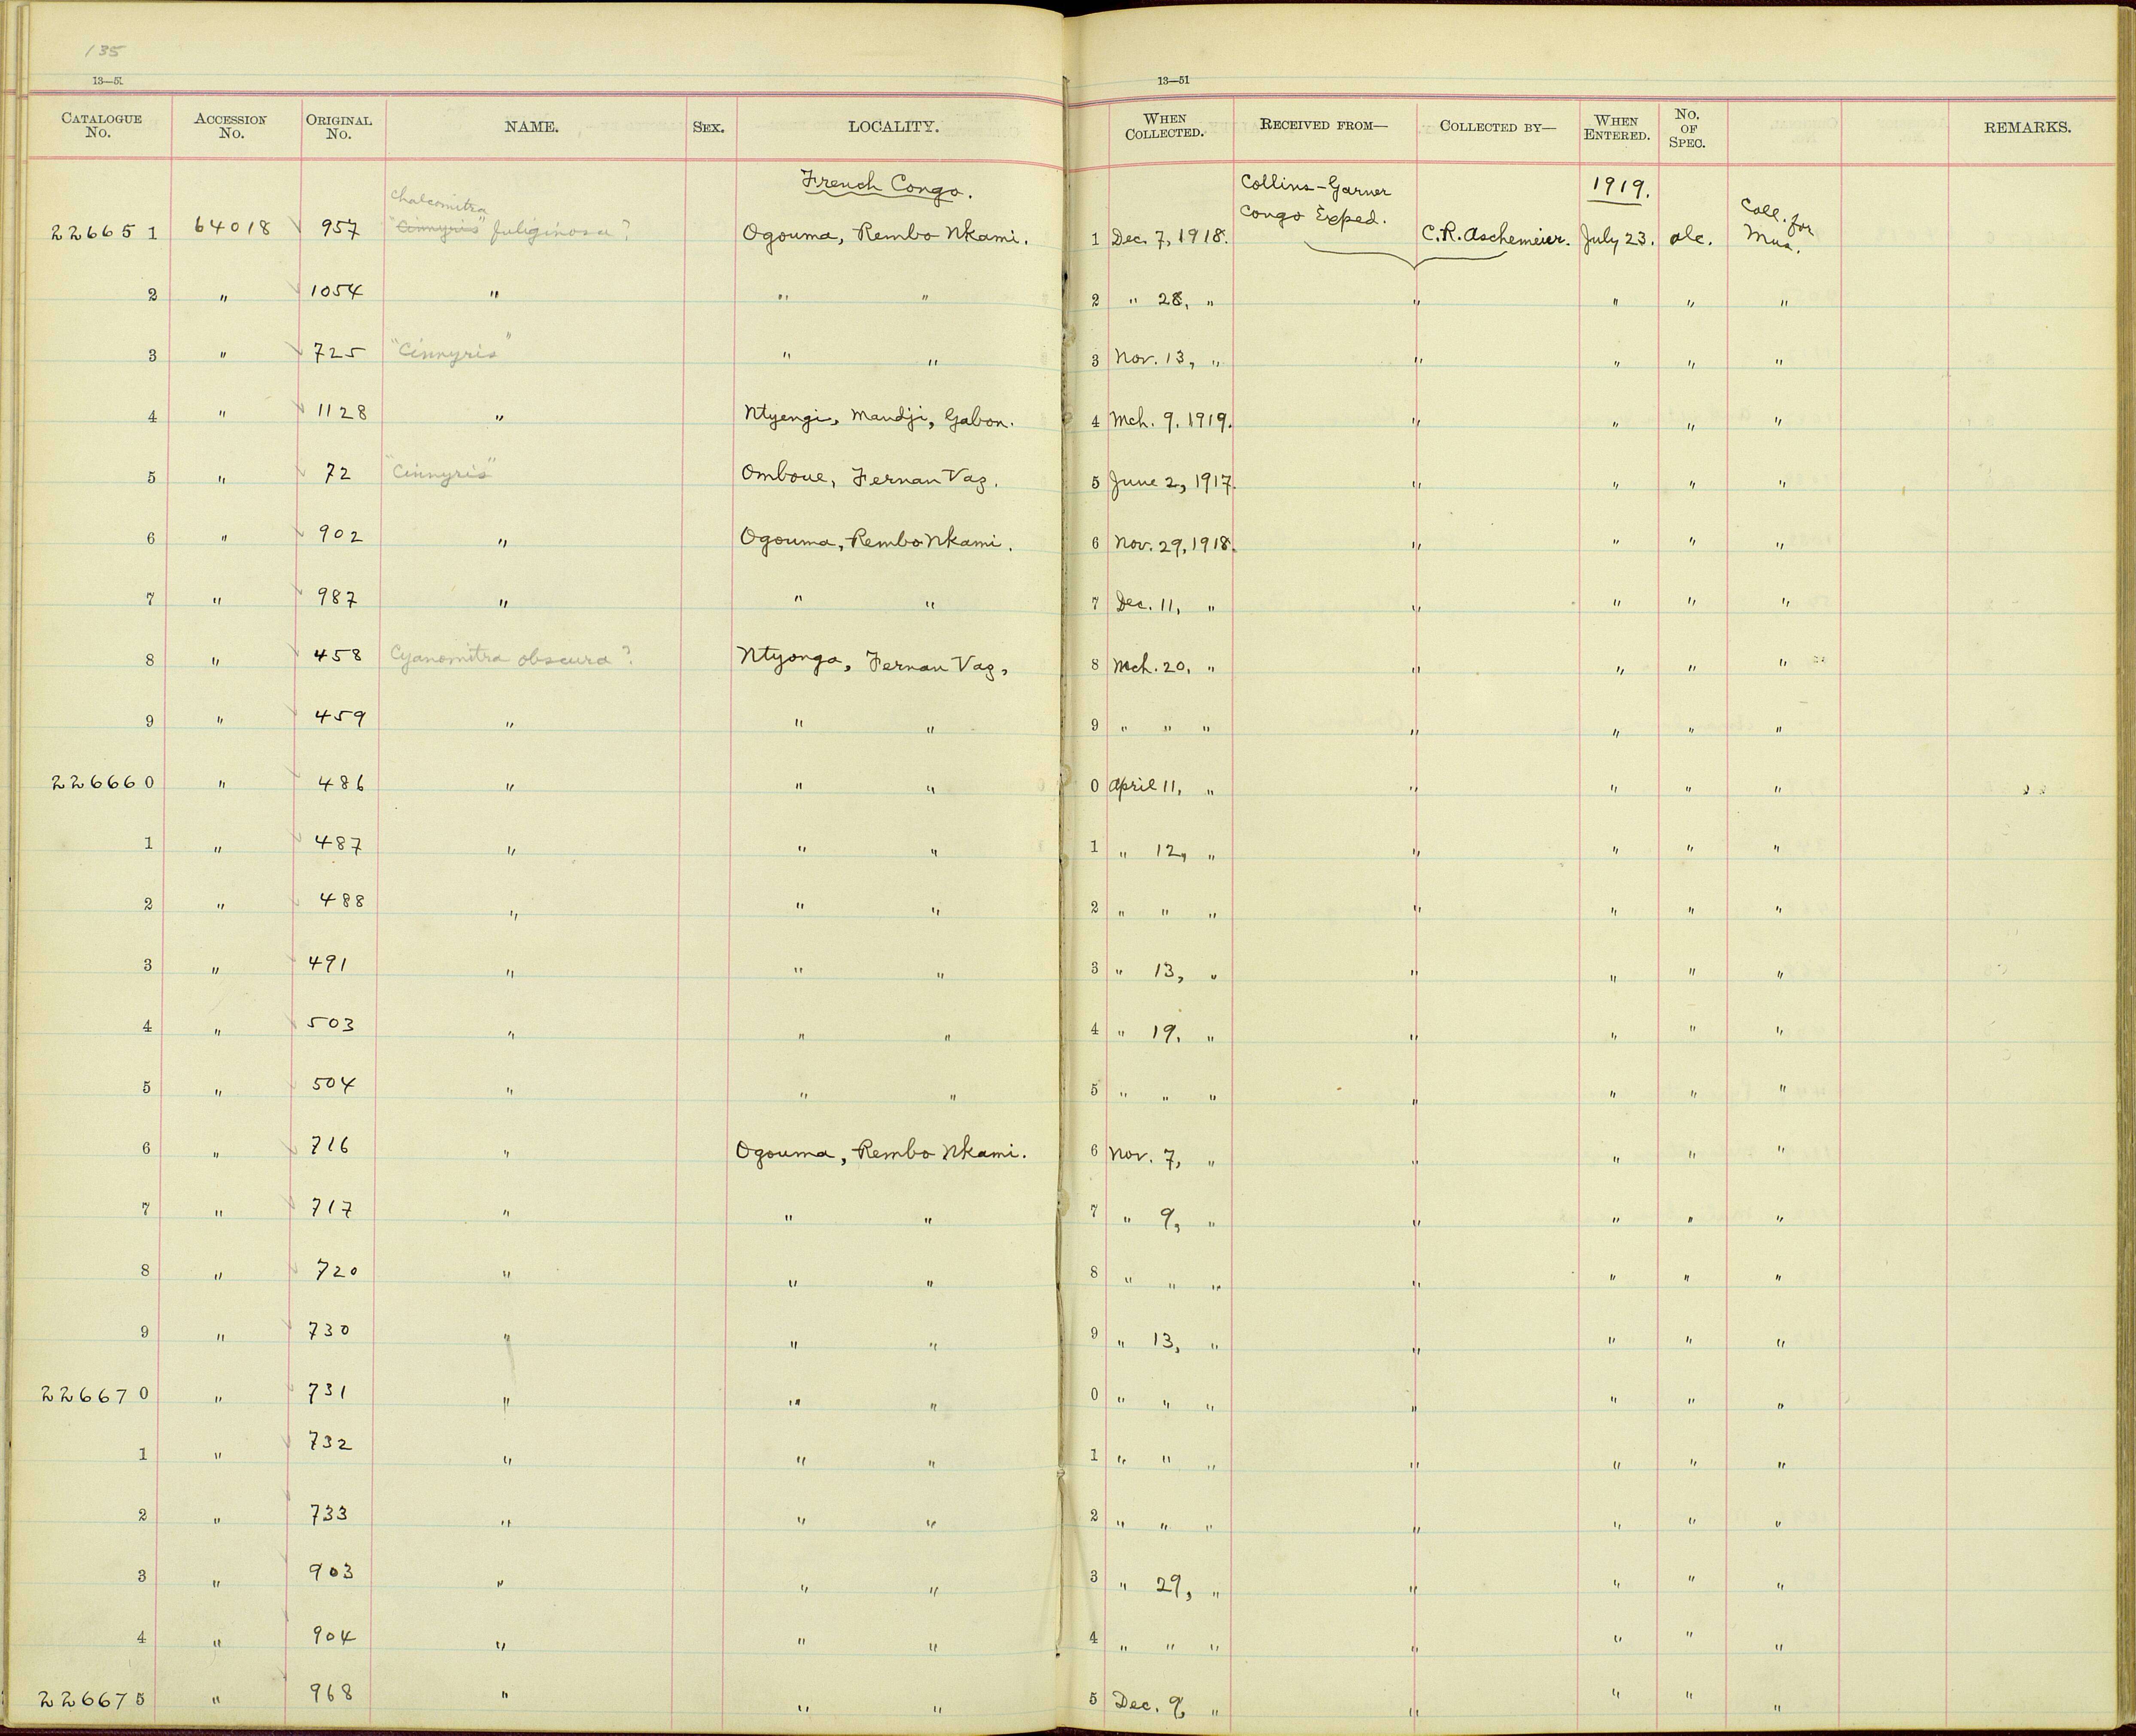 135
13—51 13—51
CATALOGUE No. ACCESSION No. ORIGINAL No. NAME. SEX. LOCALITY. WHEN COLLECTED. RECEIVED FROM— COLLECTED BY— WHEN ENTERED. No. OF SPEC. REMARKS.
French Congo. Collins-Garner 1919.
Chalcomitra Congo Exped. Coll. for
226651 64018 957 "Cinnyris" fuliginosa? Ogouma, Rembo Nkami. 1 Dec. 7, 1918. C.R. Aschemeier. July 23. alc. Mus.
2 " 1054 " " " 2 " 28, " " " " "
3 " 725 "Cinnyris" " " 3 Nov. 13, " " " " "
4 " 1128 " Ntyengi, Mandji, Gabon. 4 Mch. 9, 1919. " " " "
5 " 72 "Cinnyris" Omboue, Fernan Vaz. 5 June 2, 1917. " " " "
6 " 902 " Ogouma, Rembo Nkami. 6 Nov. 29, 1918. " " " "
7 " 987 " " " 7 Dec. 11, " " " " "
8 " 458 Cyanomitra obscura? Ntyonga, Fernan Vaz, 8 Mch. 20, " " " " "
9 " 459 " " " 9 " " " " " " "
226660 " 486 " " " 0 April 11, " " " " "
1 " 487 " " " 1 " 12, " " " " "
2 " 488 " " " 2 " " " " " " "
3 " 491 " " " 3 " 13, " " " " "
4 " 503 " " " 4 " 19, " " " " "
5 " 504 " " " 5 " " " " " " "
6 " 716 " Ogouma, Rembo Nkami. 6 Nov. 7, " " " " "
7 " 717 " " " 7 " 9, " " " " "
8 " 720 " " " 8 " " " " " " "
9 " 730 " " " 9 " 13, " " " " "
226670 " 731 " " " 0 " " " " " " "
1 " 732 " " " 1 " " " " " " "
2 " 733 " " " 2 " " " " " " "
3 " 903 " " " 3 " 29, " " " " "
4 " 904 " " " 4 " " " " " " "
226675 " 968 " " " 5 Dec. 9, " " " " "